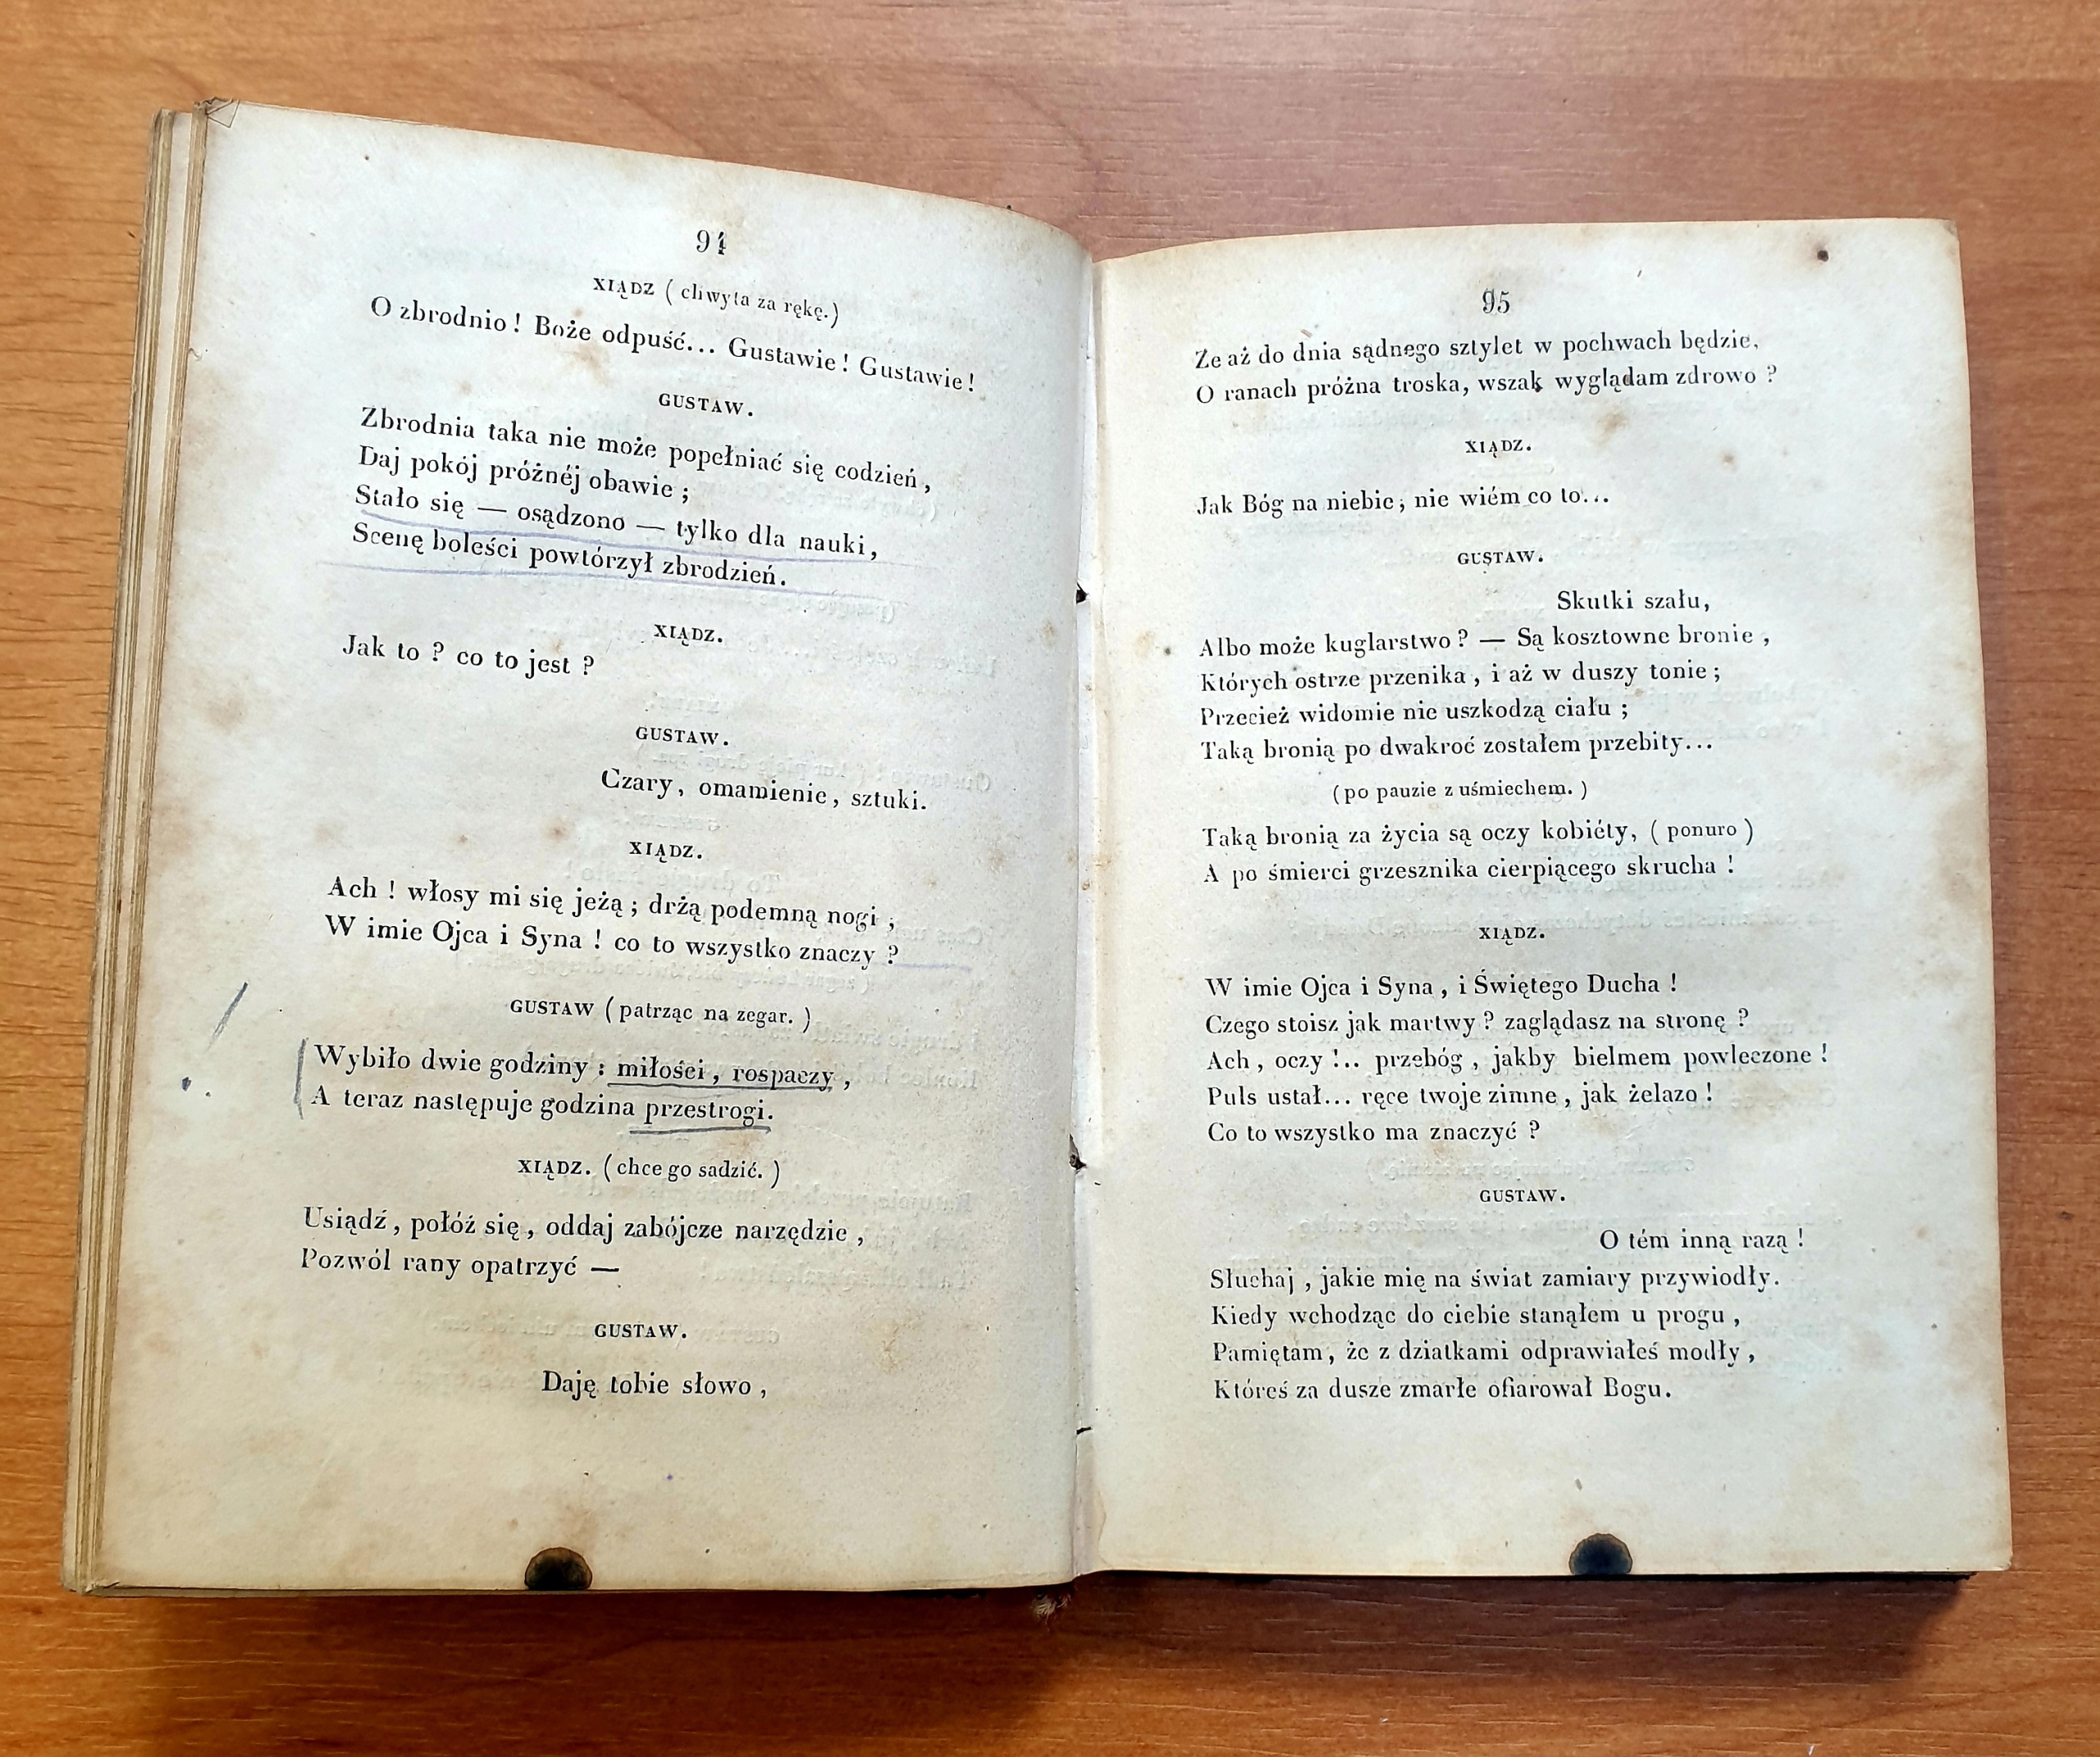 94
XIĄDZ ( chwyta za rękę.)
O zbrodnio ! Boże odpuść... Gustawie ! Gustawie !
GUSTAW.
Zbrodnia taka nie może popełniać się codzień ,
Daj pokój próżnéj obawie ;
Stało się — osądzono — tylko dla nauki ,
Scenę boleści powtórzył zbrodzień.
XIĄDZ.
Jak to ? co to jest ?
GUSTAW.
Czary , omamienie , sztuki.
XIĄDZ.
Ach ! włosy mi się jeżą ; drżą podemną nogi ;
W imie Ojca i Syna ! co to wszystko znaczy ?
GUSTAW ( patrząc na zegar. )
Wybiło dwie godziny : miłości , rospaczy ,
A teraz następuje godzina przestrogi.
XIĄDZ. ( chce go sadzić. )
Usiądź , połóź się , oddaj zabójcze narzędzie ,
Pozwól rany opatrzyć —
GUSTAW.
Daję tobie słowo ,
95
Ze aż do dnia sądnego sztylet w pochwach będzie,
O ranach próżna troska, wszak wyglądam zdrowo ?
XIĄDZ.
Jak Bóg na niebie, nie wiém co to...
GUSTAW.
Skutki szału,
Albo może kuglarstwo ? — Są kosztowne bronie ,
Których ostrze przenika , i aż w duszy tonie ;
Przecież widomie nie uszkodzą ciału ;
Taką bronią po dwakroć zostałem przebity...
( po pauzie z uśmiechem. )
Taką bronią za życia są oczy kobiéty, ( ponuro )
A po śmierci grzesznika cierpiącego skrucha !
XIĄDZ.
W imie Ojca i Syna , i Świętego Ducha !
Czego stoisz jak martwy ? zaglądasz na stronę ?
Ach , oczy !.. przebóg , jakby bielmem powleczone !
Puls ustał... ręce twoje zimne , jak żelazo !
Co to wszystko ma znaczyć ?
GUSTAW.
O tém inną razą !
Słuchaj , jakie mię na świat zamiary przywiodły.
Kiedy wchodząc do ciebie stanąłem u progu ,
Pamiętam , że z dziatkami odprawiałeś modły ,
Któreś za dusze zmarłe ofiarował Bogu.